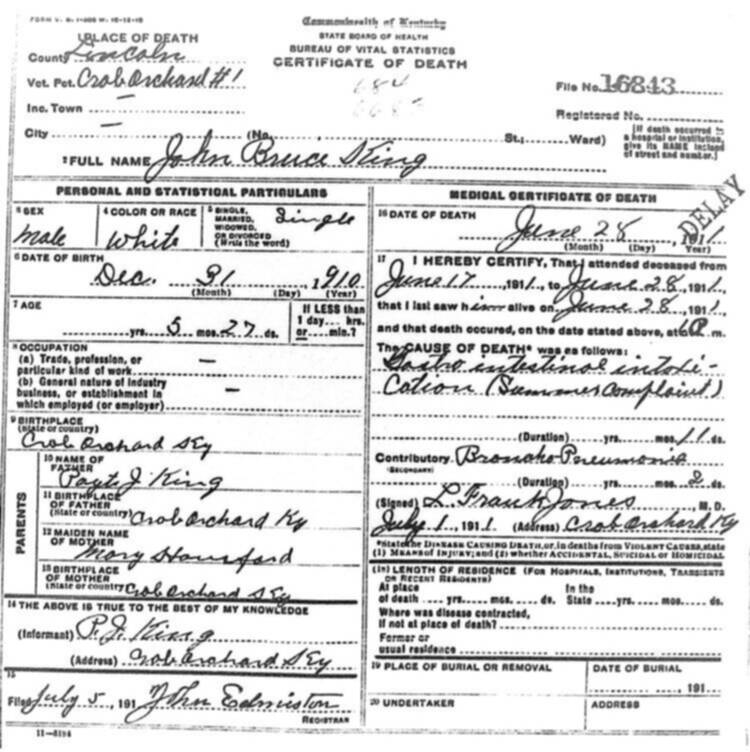 FORM V. S. 1-
Commonwealth of Kentucky
STATE BOARD OF HEALTH
BUREAU OF VITAL STATISTICS
CERTIFICATE OF DEATH
1 PLACE OF DEATH
County Lincoln
Vot. Pct. Crab Orchard #1
Inc. Town —
City
(No. St.; Ward)
File No. 16843
Registered No.
[If death occurred in a hospital or institution, give its NAME instead of street and number.]
2 FULL NAME John Bruce King
PERSONAL AND STATISTICAL PARTICULARS
3 SEX
Male
4 COLOR OR RACE
White
5 SINGLE, MARRIED, WIDOWED, OR DIVORCED (Write the word)
Single
6 DATE OF BIRTH
Dec. 31 1910
(Month) (Day) (Year)
7 AGE
yrs. 5 mos. 27 ds.
If LESS than
1 day... hrs.
or... min.?
8 OCCUPATION
(a) Trade, profession, or
particular kind of work —
(b) General nature of industry
business, or establishment in —
which employed (or employer)
9 BIRTHPLACE
(State or country)
Crab Orchard Ky
PARENTS
10 NAME OF
FATHER
J. King
11 BIRTHPLACE
OF FATHER
(State or country) Crab Orchard Ky
12 MAIDEN NAME
OF MOTHER
Mary Hansford
13 BIRTHPLACE
OF MOTHER
(State or country) Crab Orchard Ky
14 THE ABOVE IS TRUE TO THE BEST OF MY KNOWLEDGE
(Informant) P. J. King
(Address) Crab Orchard Ky
15
Filed July 5, 191 John Edmiston
REGISTRAR
11-5184
MEDICAL CERTIFICATE OF DEATH
DELAY
16 DATE OF DEATH
June 28 1911
(Month) (Day) (Year)
17 I HEREBY CERTIFY, That I attended deceased from
June 17, 1911, to June 28, 1911,
that I last saw him alive on June 28, 1911,
and that death occured, on the date stated above, at m.
The CAUSE OF DEATH* was as follows:
Gastro intestinal intoxi-
cation (Summer complaint)
(Duration) yrs. mos. 11 ds.
Contributory Broncho Pneumonia
(SECONDARY)
(Duration) yrs. mos. 2 ds.
(Signed) L. Frank Jones M. D.
July 1, 1911 (Address) Crab Orchard Ky
*State the DISEASE CAUSING DEATH, or, in deaths from VIOLENT CAUSES, state
(1) MEANS OF INJURY; and (2) whether ACCIDENTAL, SUICIDAL or HOMICIDAL
18 LENGTH OF RESIDENCE (FOR HOSPITALS, INSTITUTIONS, TRANSIENTS
OR RECENT RESIDENTS)
At place In the
of death yrs. mos. ds. State yrs. mos. ds.
Where was disease contracted,
if not at place of death?
Former or
usual residence
19 PLACE OF BURIAL OR REMOVAL
DATE OF BURIAL
191
20 UNDERTAKER
ADDRESS